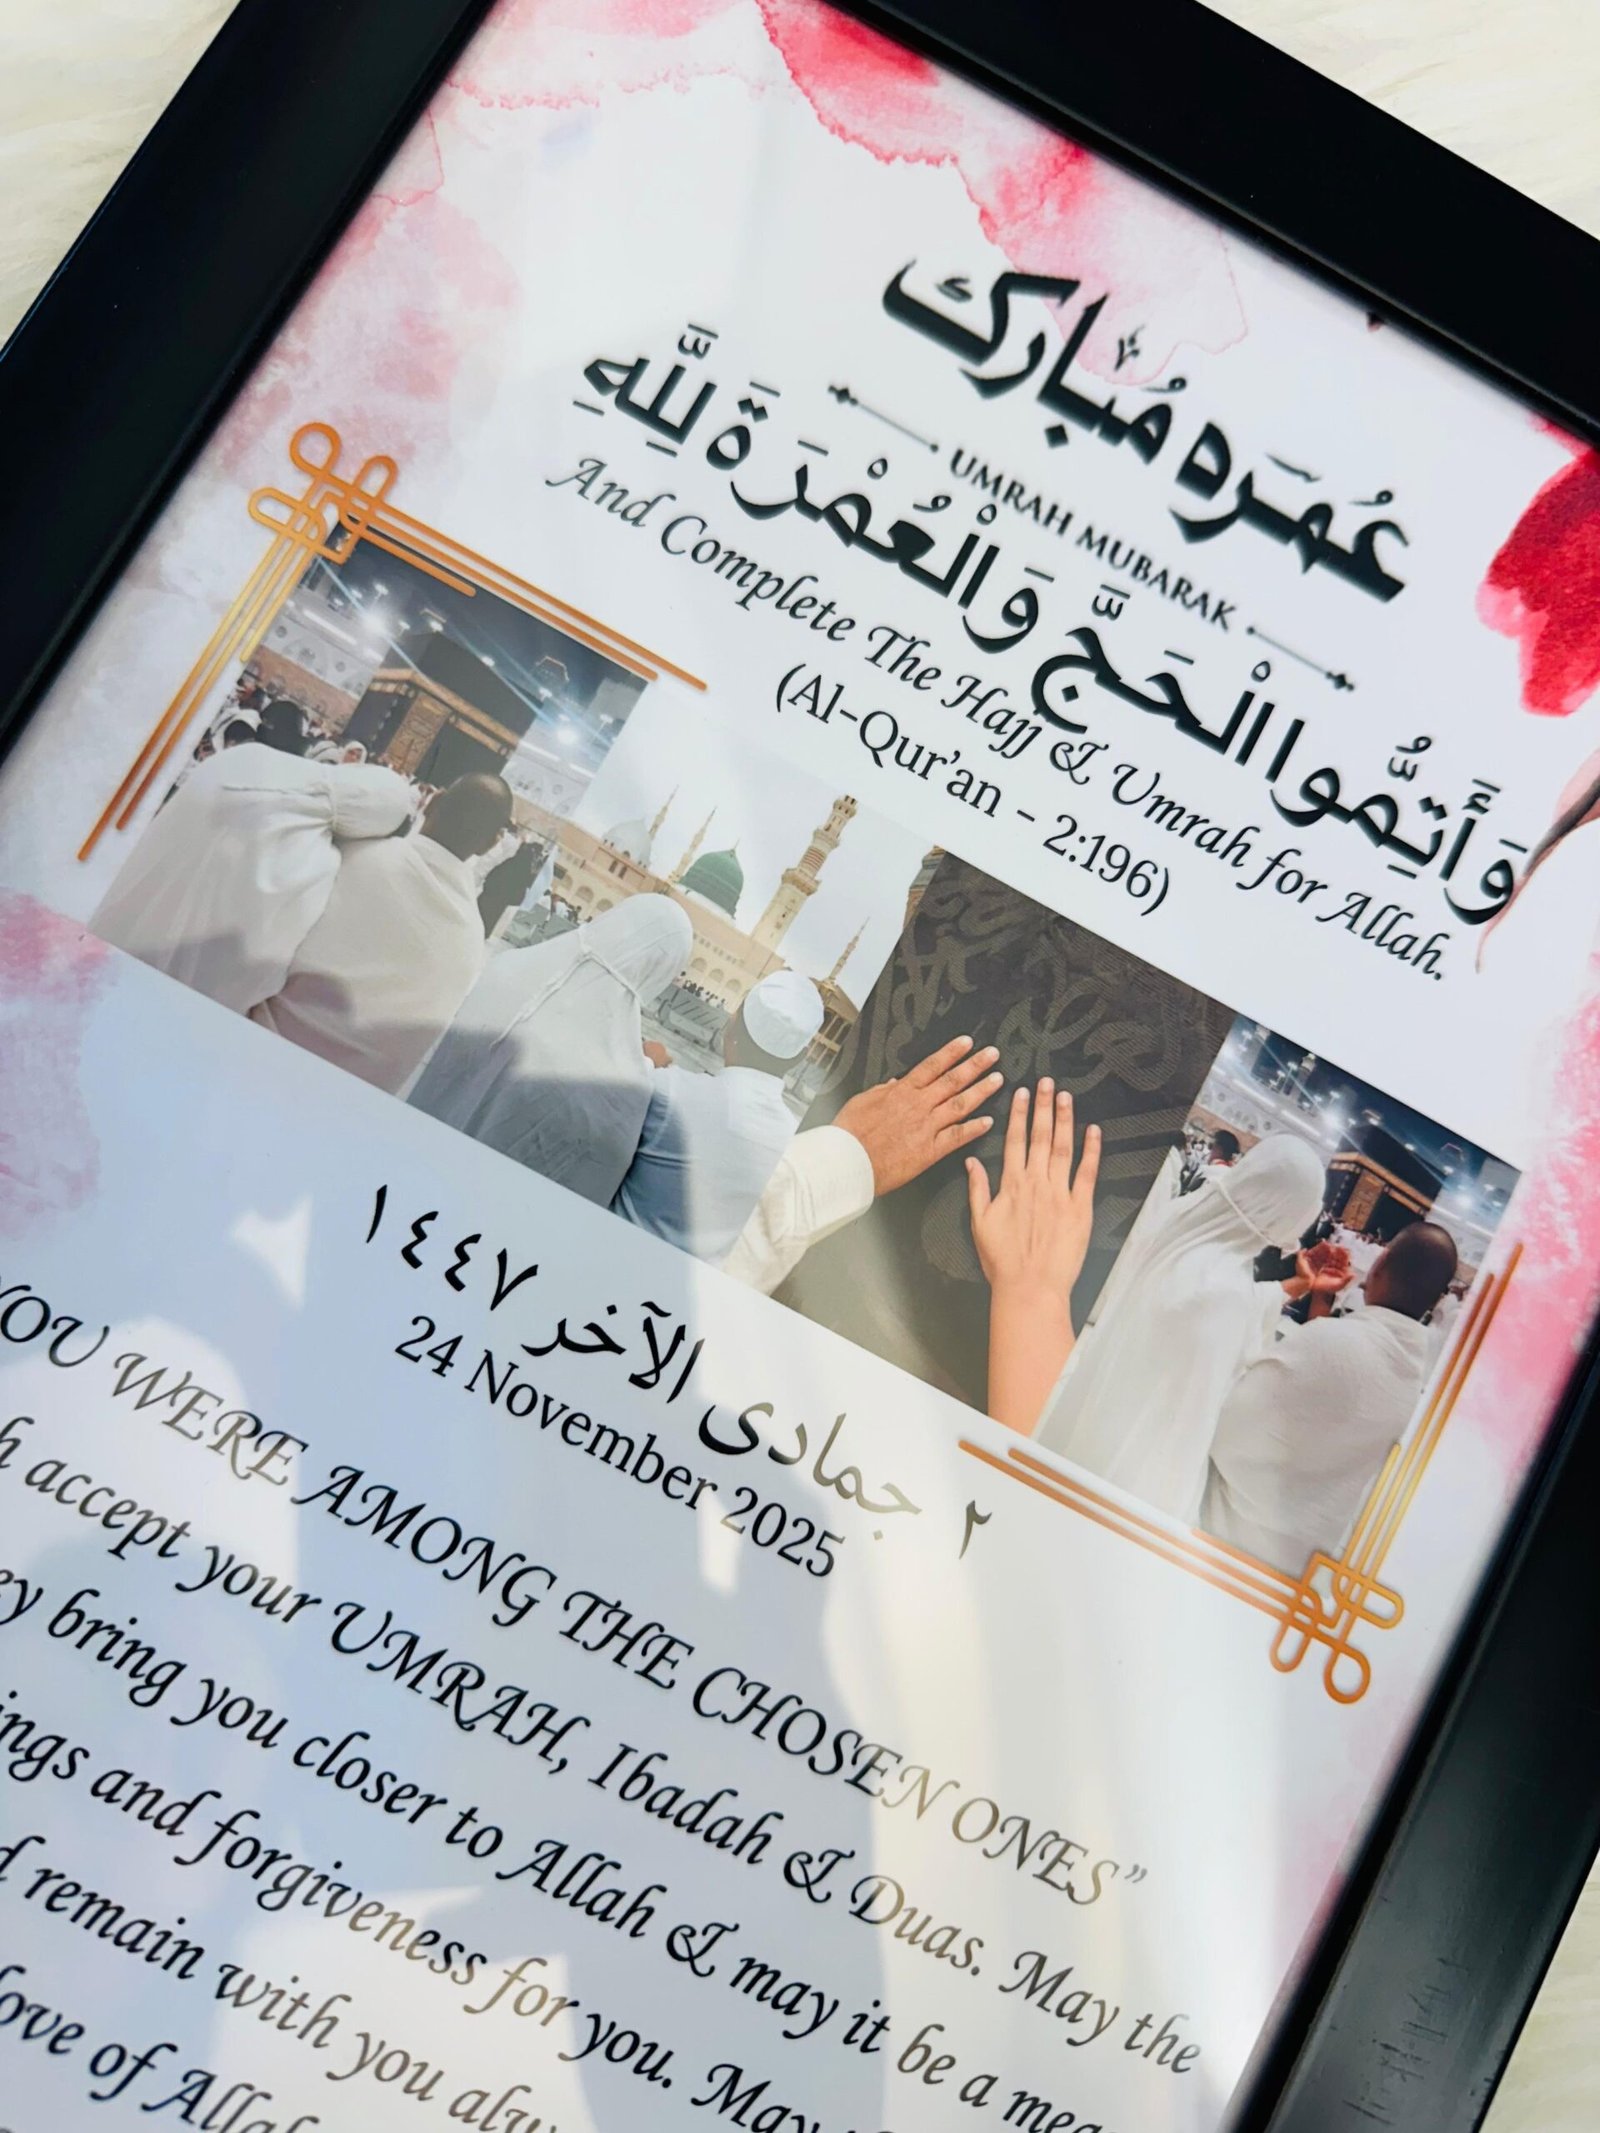 عُمَرَه مُبارك
UMRAH MUBARAK
وَأَتِمُّوا الْحَجَّ وَالْعُمْرَةَ لِلَّهِ
And Complete The Hajj & Umrah for Allah.
(Al-Qur'an - 2:196)
٢ جمادى الآخر ١٤٤٧
24 November 2025
YOU WERE AMONG THE CHOSEN ONES”
accept your UMRAH, Ibadah & Duas. May the
bring you closer to Allah & may it be a
and forgiveness for you. May
remain with you
of